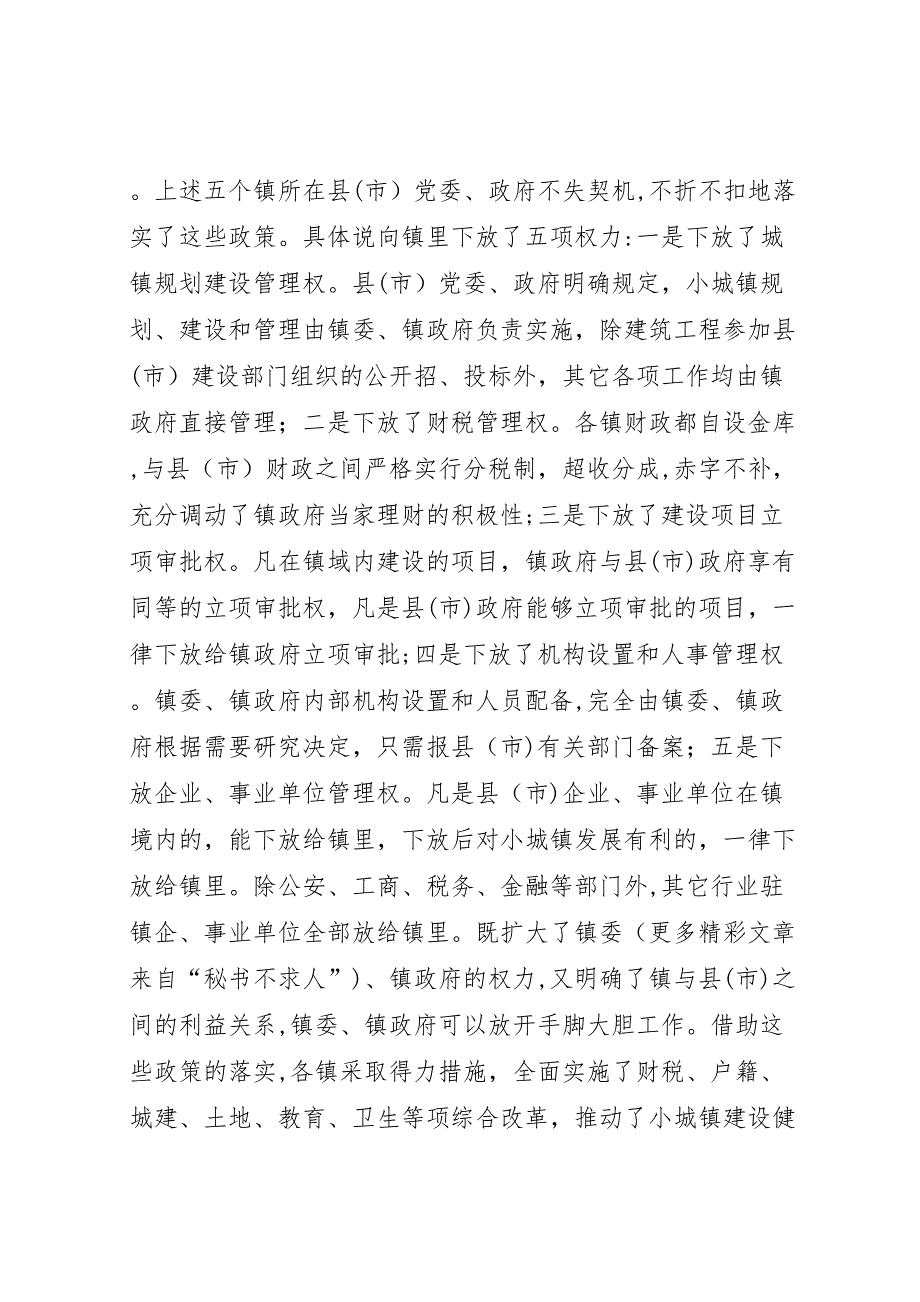 。上述五个镇所在县(市）党委、政府不失契机,不折不扣地落
实了这些政策。具体说向镇里下放了五项权力:一是下放了城
镇规划建设管理权。县(市）党委、政府明确规定，小城镇规
划、建设和管理由镇委、镇政府负责实施，除建筑工程参加县
(市）建设部门组织的公开招、投标外，其它各项工作均由镇
政府直接管理；二是下放了财税管理权。各镇财政都自设金库
,与县（市）财政之间严格实行分税制，超收分成,赤字不补，
充分调动了镇政府当家理财的积极性;三是下放了建设项目立
项审批权。凡在镇域内建设的项目，镇政府与县(市)政府享有
同等的立项审批权，凡是县(市)政府能够立项审批的项目，一
律下放给镇政府立项审批;四是下放了机构设置和人事管理权
。镇委、镇政府内部机构设置和人员配备,完全由镇委、镇政
府根据需要研究决定，只需报县（市)有关部门备案；五是下
放企业、事业单位管理权。凡是县（市)企业、事业单位在镇
境内的，能下放给镇里，下放后对小城镇发展有利的，一律下
放给镇里。除公安、工商、税务、金融等部门外,其它行业驻
镇企、事业单位全部放给镇里。既扩大了镇委（更多精彩文章
来自“秘书不求人”)、镇政府的权力,又明确了镇与县(市)之
间的利益关系,镇委、镇政府可以放开手脚大胆工作。借助这
些政策的落实,各镇采取得力措施，全面实施了财税、户籍、
城建、土地、教育、卫生等项综合改革，推动了小城镇建设健